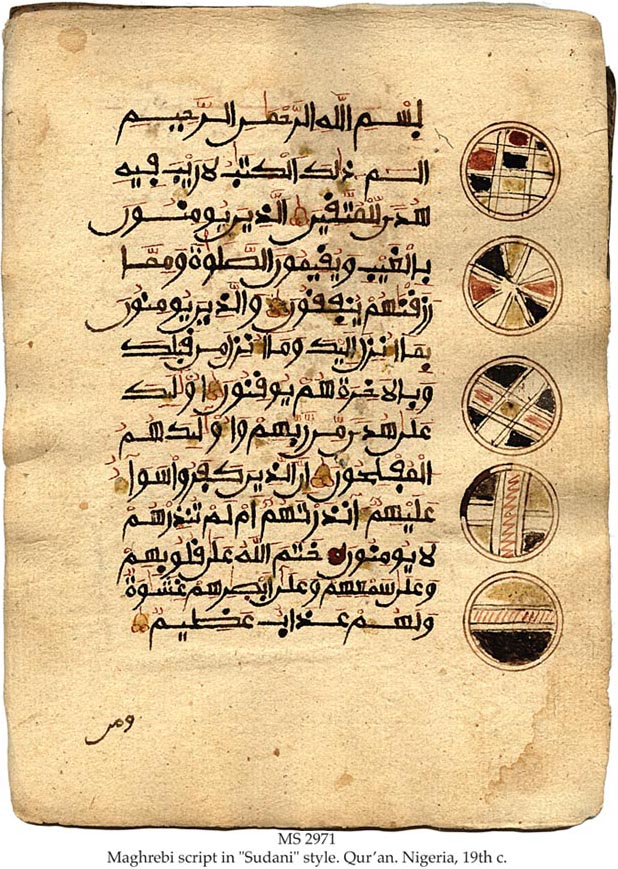 بسم الله الرحمن الرحيم
الم ذلك الكتب لا ريب فيه
هدى للمتقين الذين يومنون
بالغيب ويقيمون الصلوة ومما
رزقنهم ينفقون والذين يومنون
بما انزل اليك وما انزل من قبلك
وبالاخرة هم يوقنون اولئك
على هدى من ربهم واولئك هم
المفلحون ان الذين كفروا سوآ
عليهم آنذرتهم ام لم تنذرهم
لا يومنون ختم الله على قلوبهم
وعلى سمعهم وعلى ابصرهم غشوة
ولهم عذاب عظيم
ومن
MS 2971
Maghrebi script in "Sudani" style. Qur'an. Nigeria, 19th c.